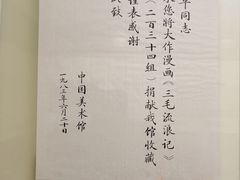 同志
您将大作漫画《三毛流浪记》
《二百三十四组》捐献我馆收藏
谨表感谢
中国美术馆
一九八三年六月二十日